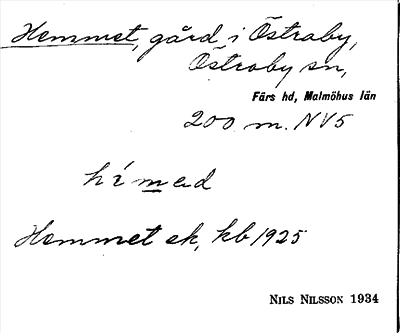 Hemmet, gård i Östraby,
Östraby sn,
Färs hd, Malmöhus län
200 m. NV5
hímad
Hemmet ek, kb 1925
NILS NILSSON 1934